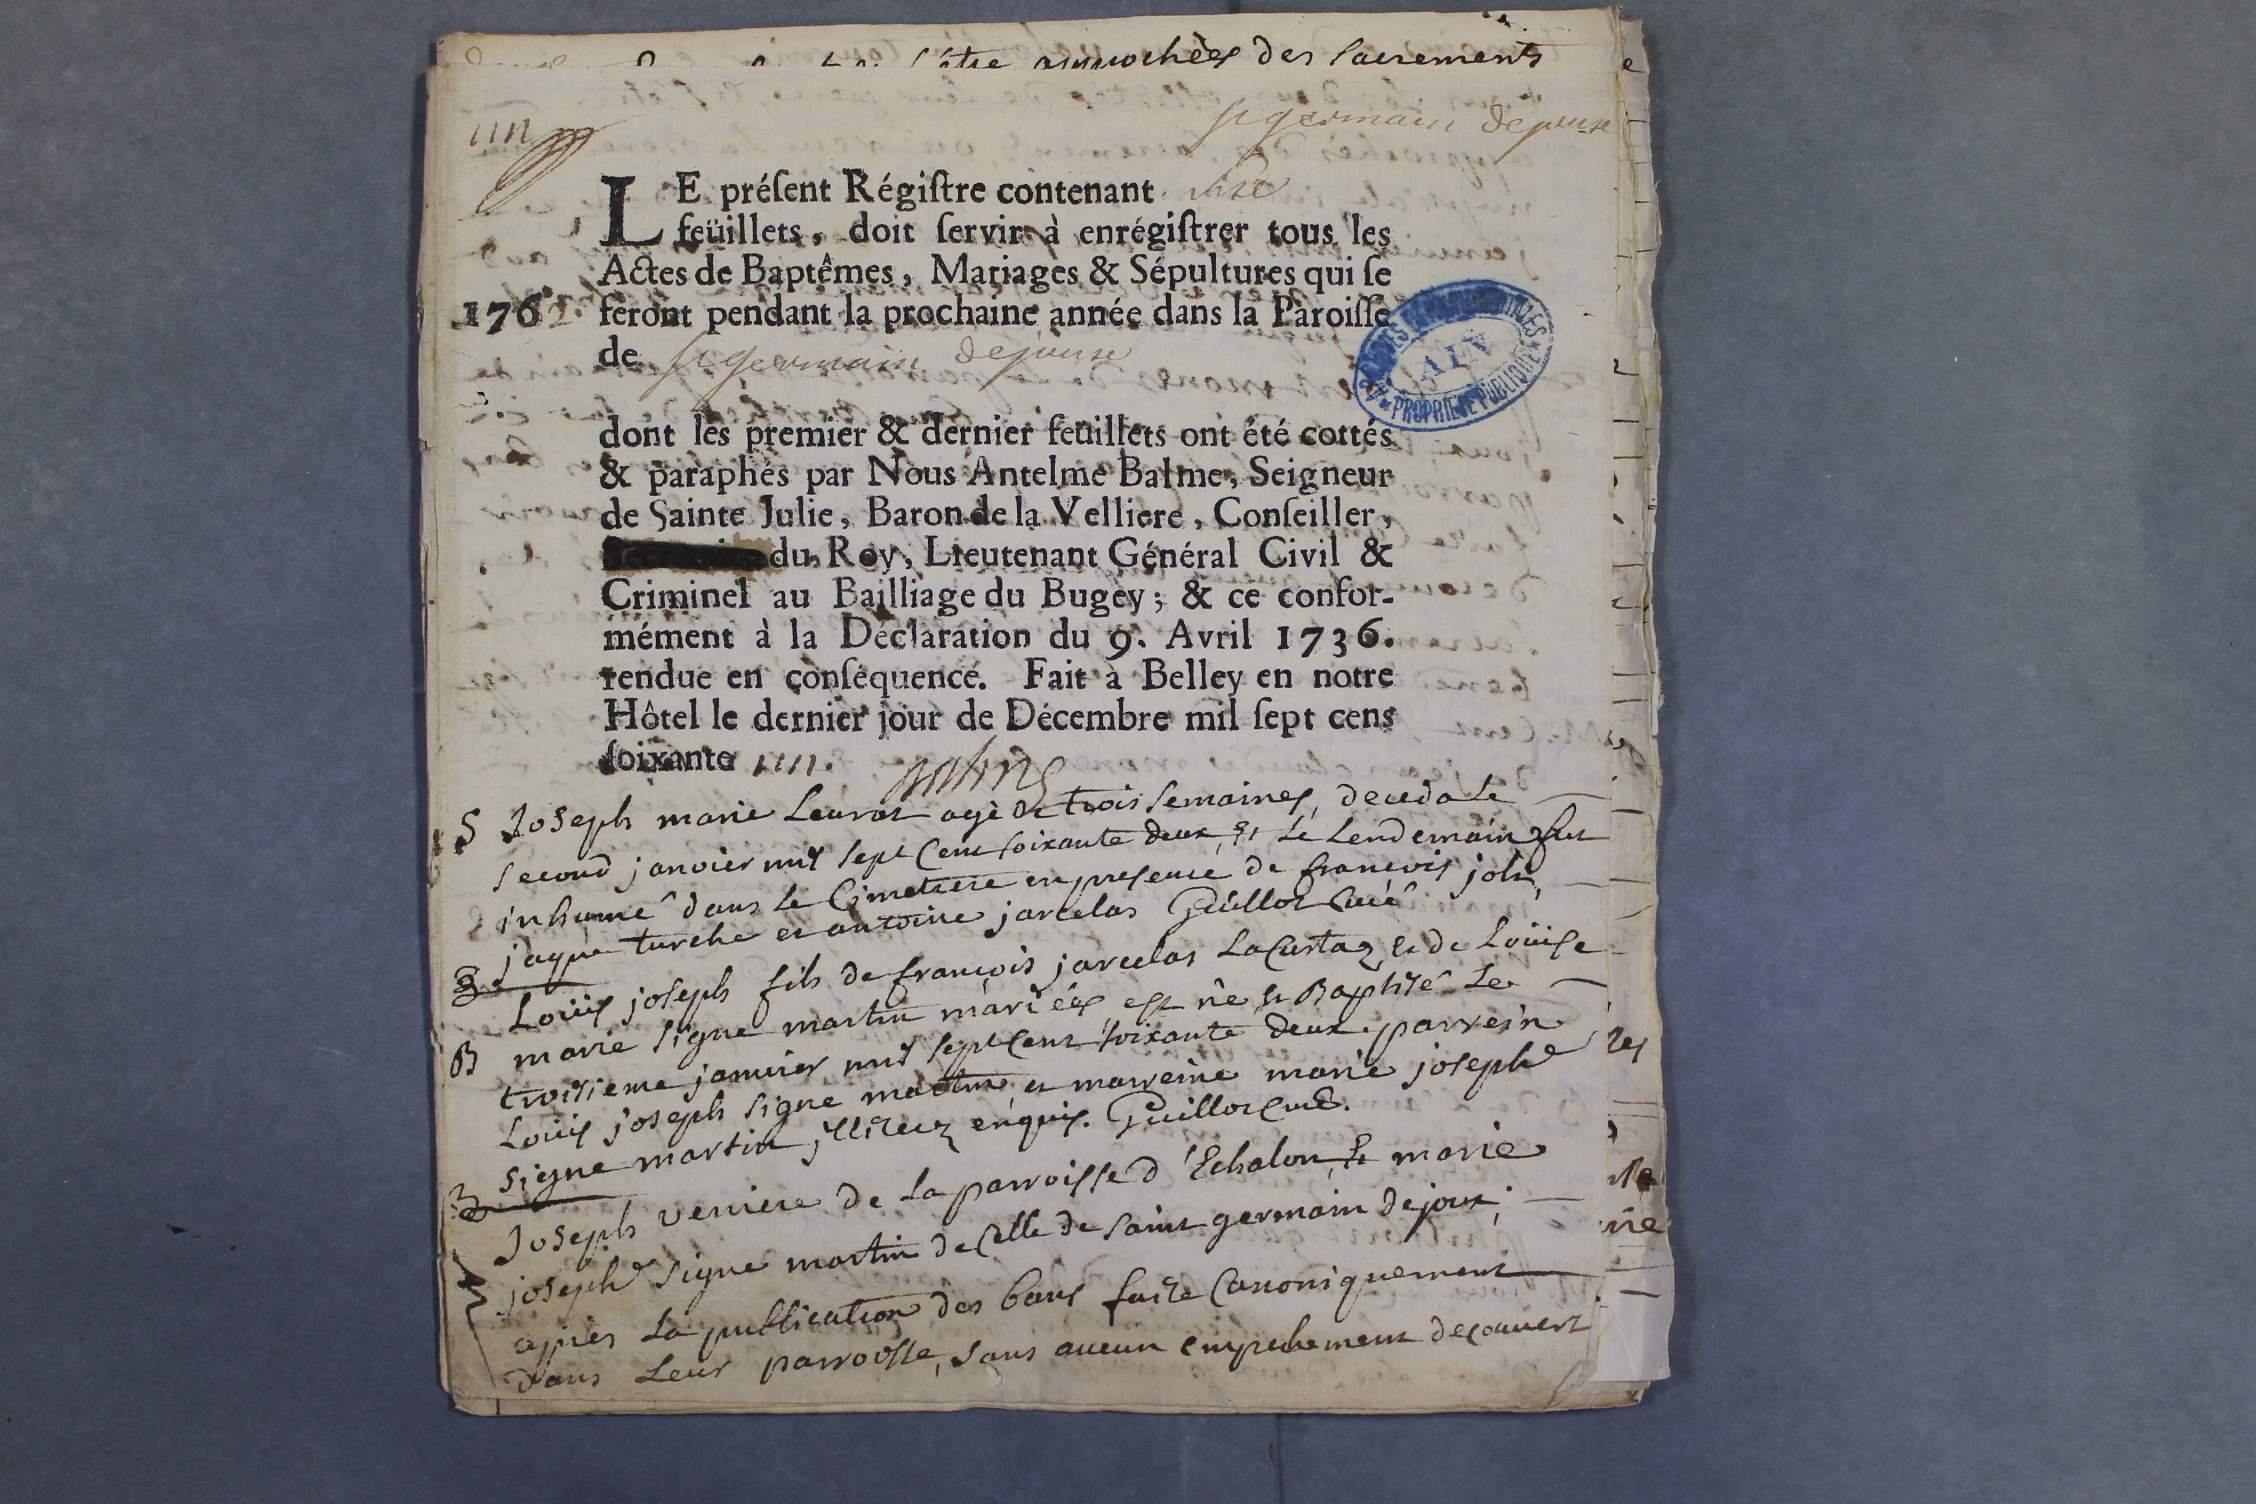 s'être approchées des sacrements
st germain dejoux
LE préſent Régiſtre contenant
feüillets, doit ſervir à enrégiſtrer tous les
Actes de Baptêmes, Mariages & Sépultures qui ſe
1762 feront pendant la prochaine année dans la Paroiſſe
de st germain dejoux
ARCHIVES DÉPARTEMENTALES
AIN
PROPRIÉTÉ PUBLIQUE
dont les premier & dernier feüillets ont été cottés
& paraphés par Nous Antelme Balme, Seigneur
de Sainte Julie, Baron de la Velliere, Conſeiller,
du Roy, Lieutenant Général Civil &
Criminel au Bailliage du Bugey; & ce confor-
mément à la Déclaration du 9. Avril 1736.
rendue en conſéquence. Fait à Belley en notre
Hôtel le dernier jour de Décembre mil ſept cens
ſoixante
Balme
S Joseph marie agé de trois semaines, deceda le
second janvier mil sept cent soixante deux, et le lendemain fut
inhumé dans le Cimetiere en presence de françois
jaque turche et antoine jarcelas Guillot Curé
Loüis joseph fils de françois jarcelas et de Loüise
marie signe martin mariés, est né et Baptisé le
B troisieme janvier mil sept cent soixante deux. parrein
Loüis joseph signe martin, et marreine marie josephe
signe martin, enquis. Guillot Curé.
Joseph verniere de la parroisse d'Echalon, et marie
josephe signe martin de celle de saint germain dejoux,
après la publication des bans faite Canoniquement
dans leur parroisse, sans aucun empechement decouvert